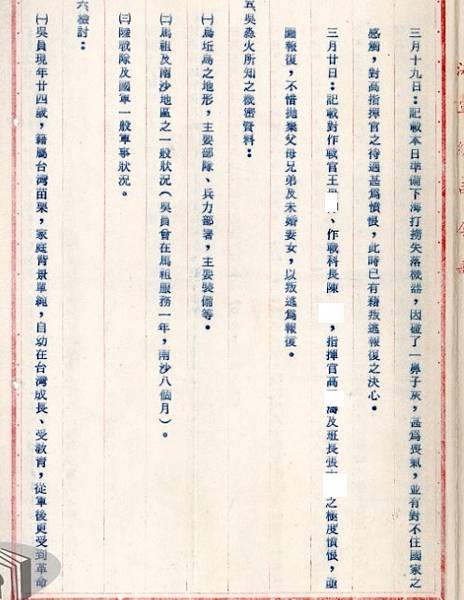 三月十九日：記載本日準備下海打撈失落機器，因碰了一鼻子灰，甚為喪氣，並有對不住國家之
感觸，對高指揮官之待遇甚為憤恨，此時已有藉叛逃報復之決心。
三月廿日：記載對作戰官王、作戰科長陳，指揮官高及班長張之極度憤恨，
圖報復，不惜拋棄父母兄弟及未婚妻女，以叛逃為報復。
五、吳淼火所知之機密資料：
㈠烏坵島之地形，主要部隊、兵力部署，主要裝備等。
㈡馬祖及南沙地區之一般狀況（吳員曾在馬祖服務一年，南沙八個月）。
㈢陸戰隊及國軍一般軍事狀況。
六、檢討：
㈠吳員現年廿四歲，籍屬台灣苗栗，家庭背景單純，自幼在台灣成長、受教育，從軍後更受到革命